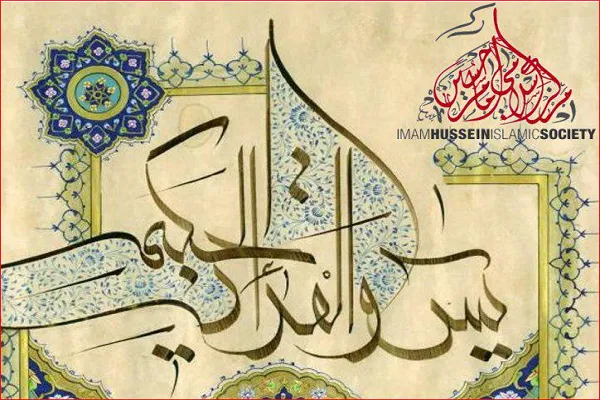 یس والقرآن الحکیم
IMAMHUSSEINISLAMICSOCIETY